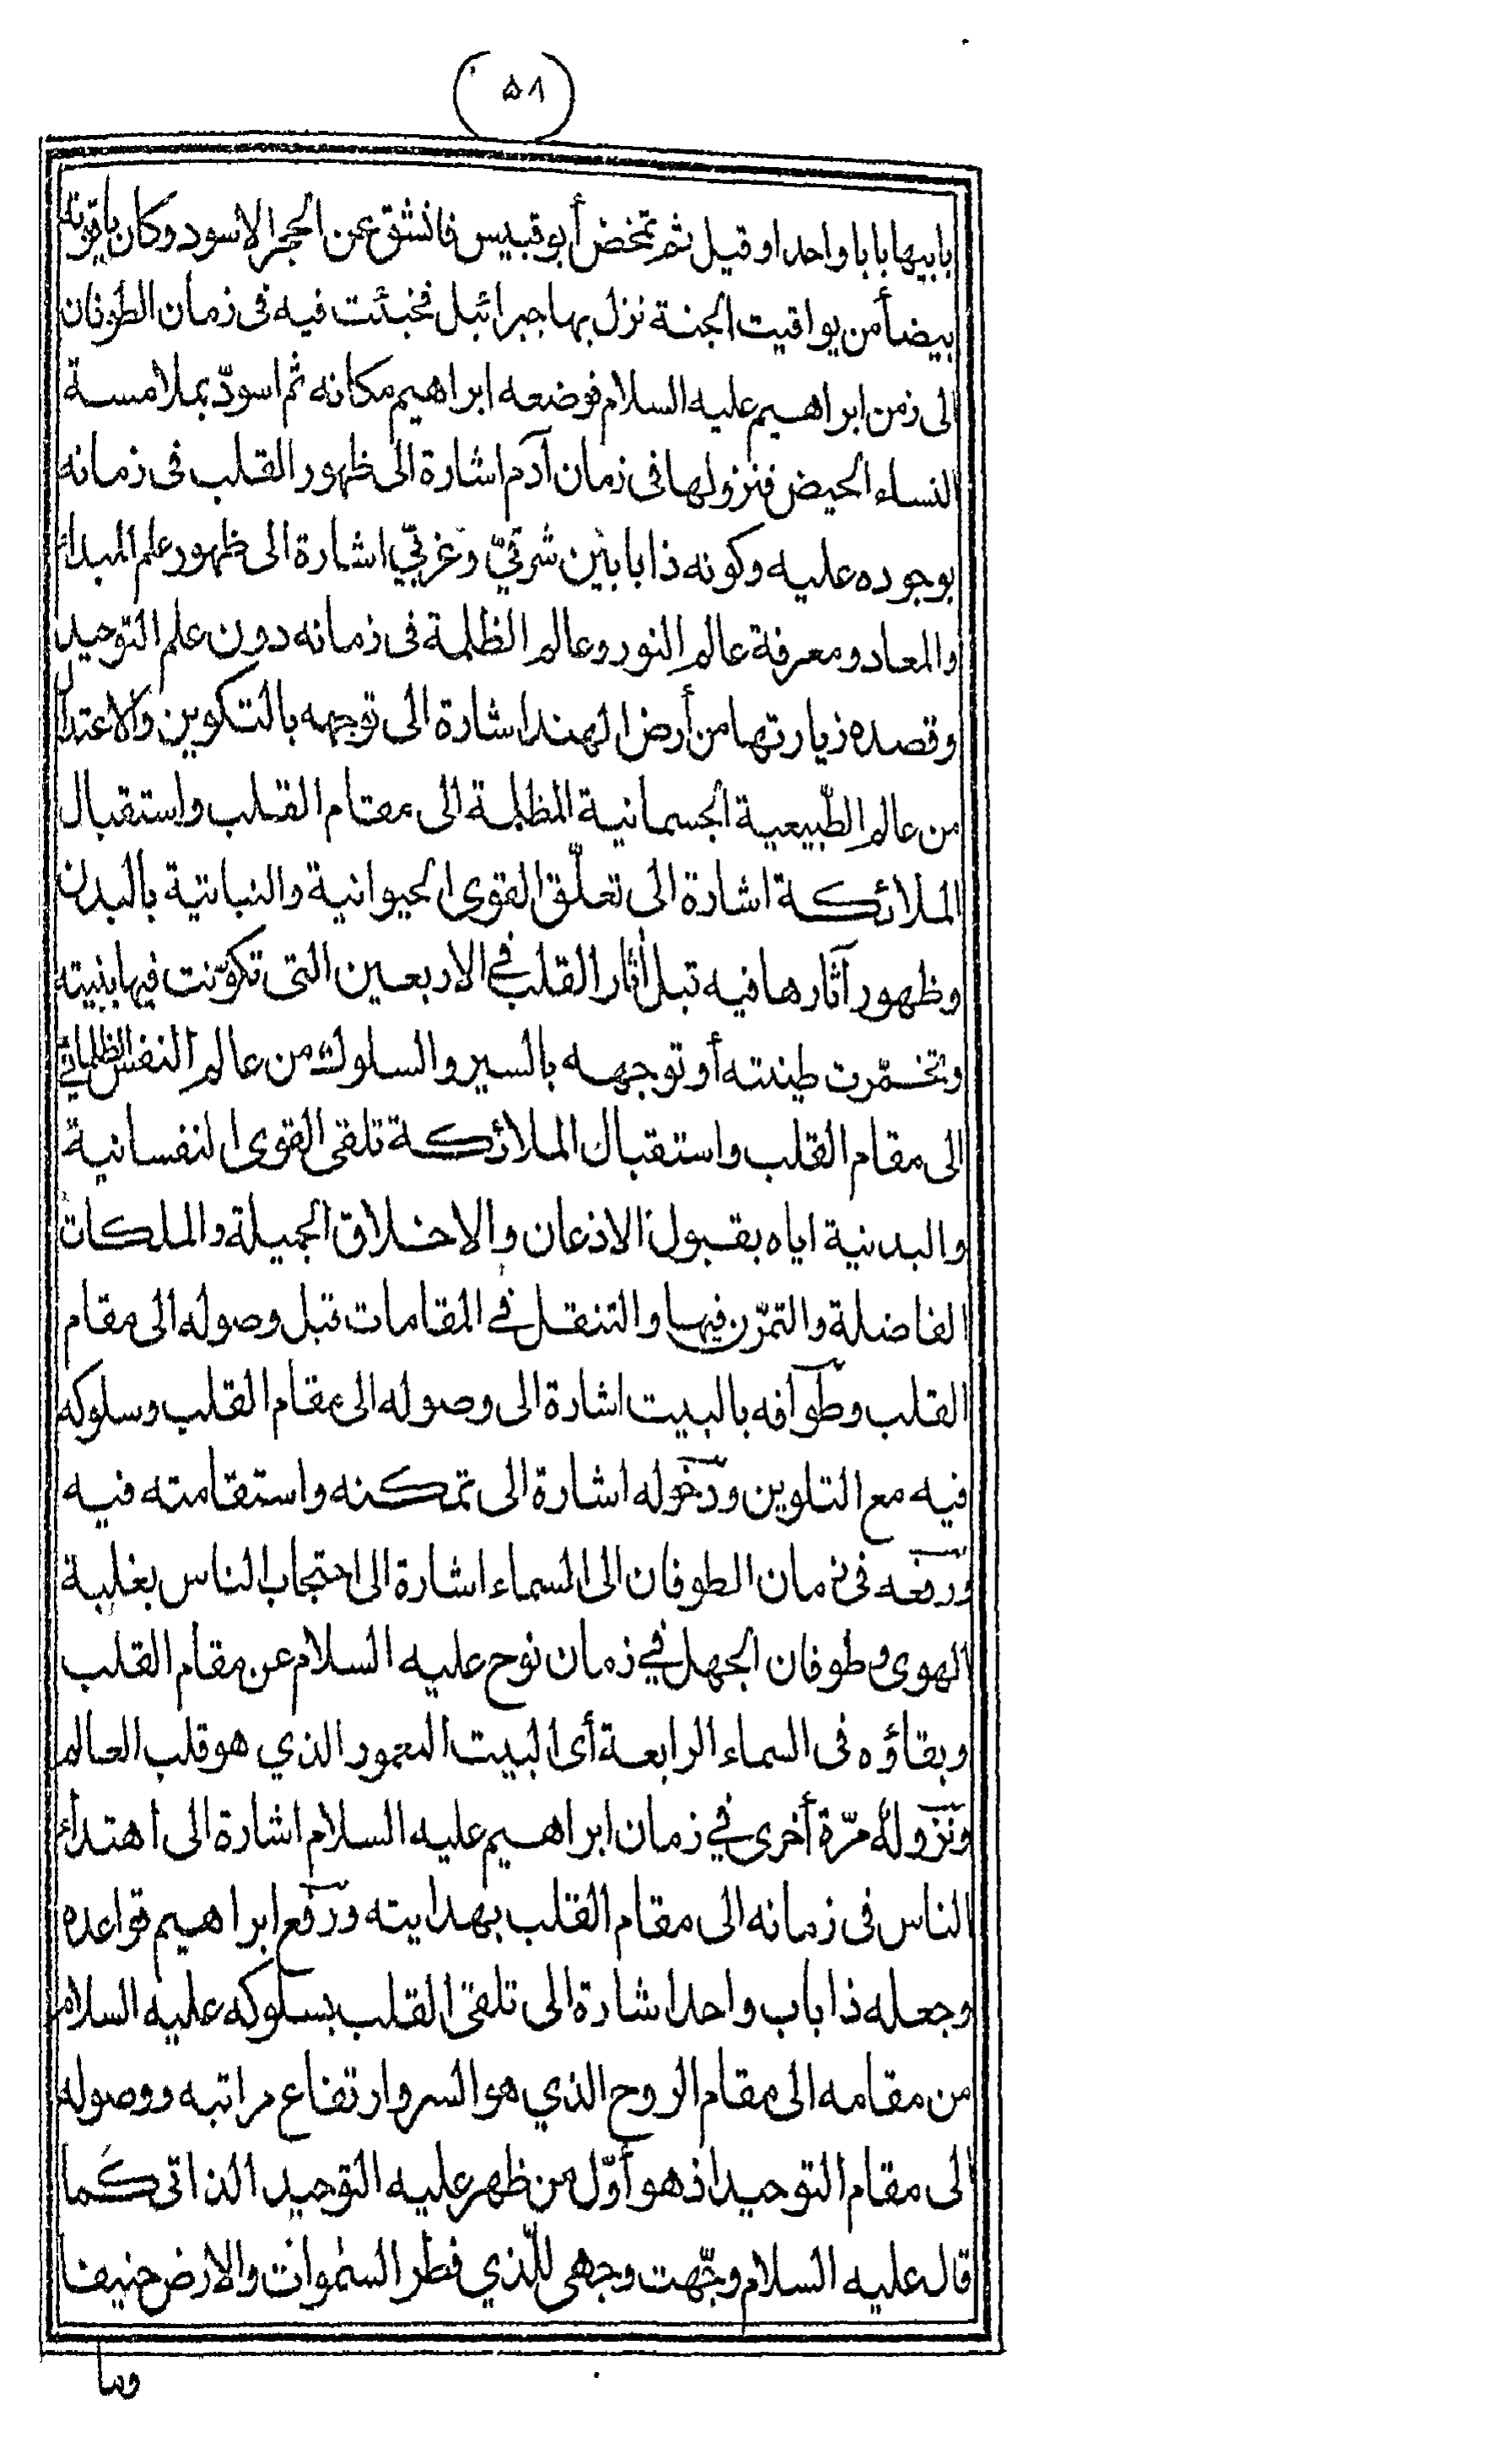 (٥٨)
بابيها بابا واحدا وقيل ثم تمخض أبو قبيس فانشق عن الحجر الاسود وكان ياقوتة
بيضأ من يواقيت الجنة نزل بها جبرائيل فخبئت فيه فى زمان الطوفان
الى زمن ابراهيم عليه السلام فوضعه ابراهيم مكانه ثم اسودّ بملامسة
النساء الحيض فنزولها فى زمان آدم اشارة الى ظهور القلب فى زمانه
بوجوده عليه وكونه ذا بابين شرقيّ وغربيّ اشارة الى ظهور علم المبدائ
والمعاد ومعرفة عالم النور وعالم الظلمة فى زمانه دون علم التوحيد
وقصده زيارتها من أرض الهند اشارة الى توجهه بالتكوين والاعتدال
من عالم الطّبيعية الجسمانية المظلمة الى مقام القلب واستقبال
الملائكة اشارة الى تعلّق القوى الحيوانية والنباتية بالبدن
وظهور آثارها فيه قبل أثار القلب في الاربعين التى تكوّنت فيها بنيته
وتخمّرت طينته أو توجهه بالسير والسلوك من عالم النفس الظلمانيّ
الى مقام القلب واستقبال الملائكة تلقى القوى النفسانية
والبدنية اياه بقبول الاذعان والاخلاق الجميلة والملكات
الفاضلة والتمرّن فيها والتنقل في المقامات قبل وصوله الى مقام
القلب وطوافه بالبيت اشارة الى وصوله الى مقام القلب وسلوكه
فيه مع التلوين ودخوله اشارة الى تمكنه واستقامته فيه
ورفعه فى زمان الطوفان الى السماء اشارة الى احتجاب الناس بغلبة
الهوى وطوفان الجهل في زمان نوح عليه السلام عن مقام القلب
وبقاؤه فى السماء الرابعة أى البيت المعمور الذي هو قلب العالم
ونزوله مرّة أخرى في زمان ابراهيم عليه السلام اشارة الى اهتدائ
الناس فى زمانه الى مقام القلب بهدايته ورفع ابراهيم قواعده
وجعله ذا باب واحد اشارة الى تلقى القلب بسلوكه عليه السلام
من مقامه الى مقام الروح الذي هو السر وارتفاع مراتبه ووصوله
الى مقام التوحيد اذ هو أوّل من ظهر عليه التوحيد الذاتى كما
قال عليه السلام وجّهت وجهى للّذي فطر السموات والارض حنيفا
وما